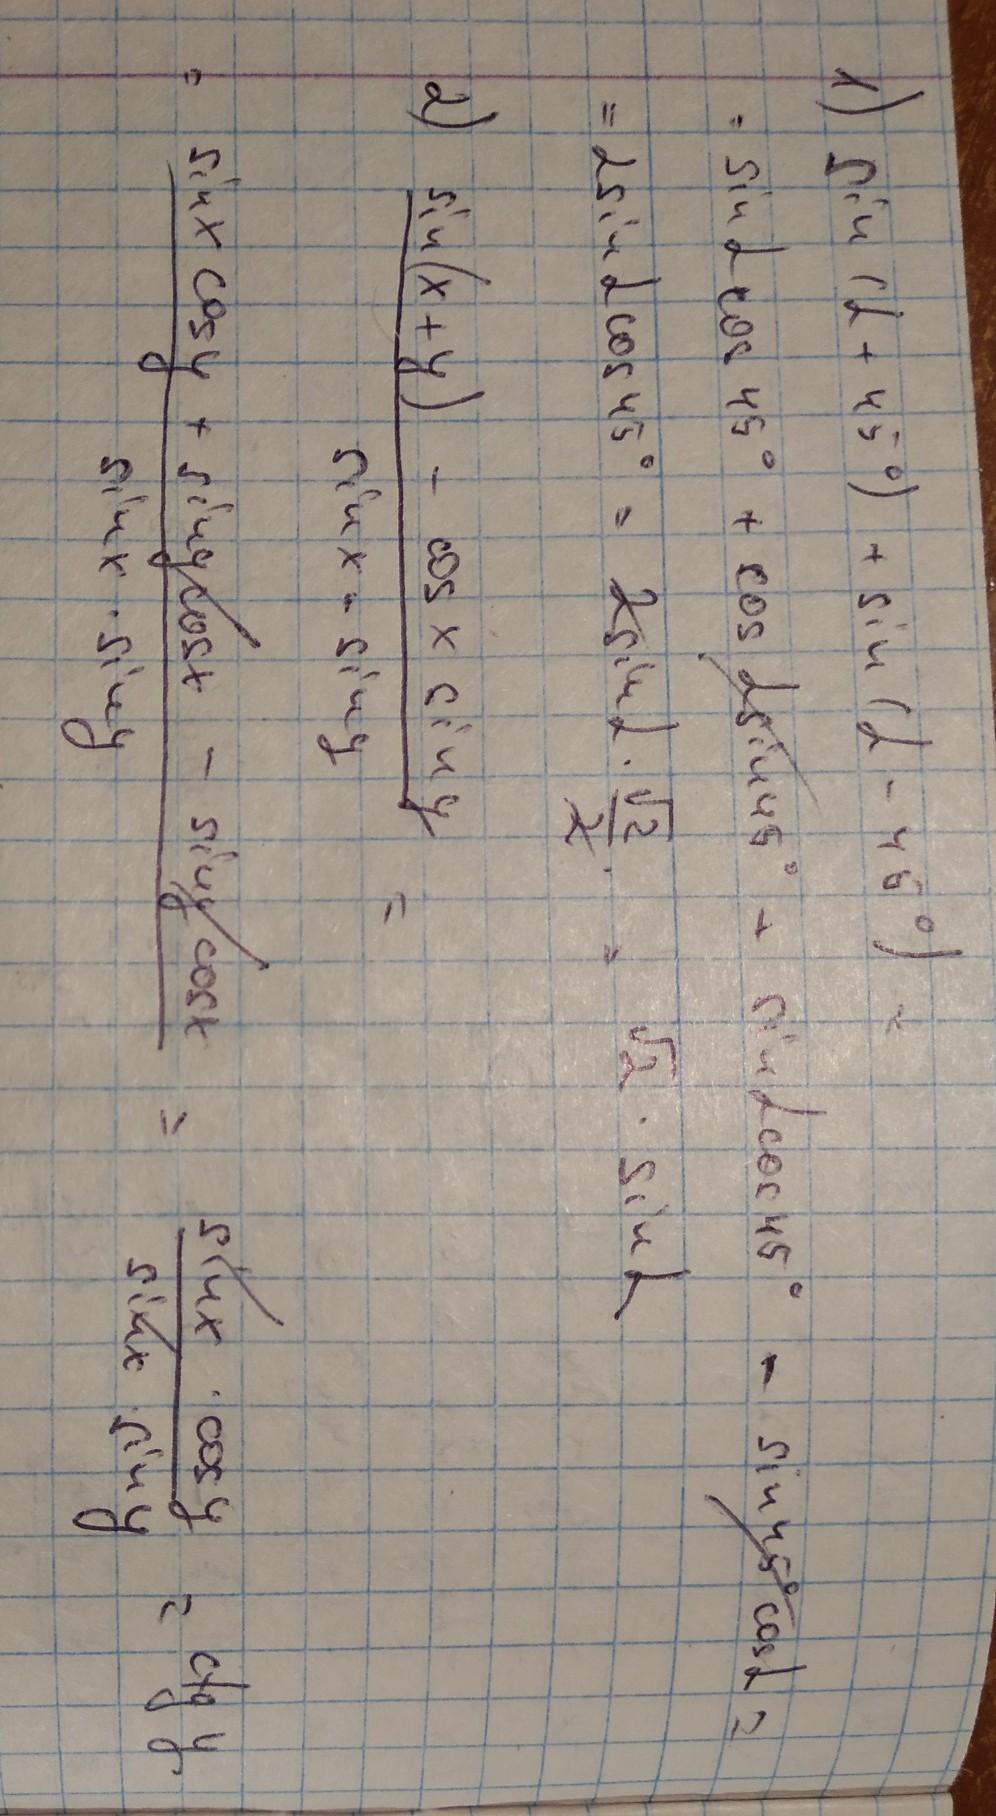 1) sin(α + 45°) + sin(α - 45°) =
= sinα cos 45° + cos α sin 45° + sinα cos 45° - sin 45° cosα =
= 2 sinα cos 45° = 2 sinα · √2/2 = √2 · sinα
2) sin(x + y) - cos x sin y =
sin x · sin y
= sin x cos y + sin y cos x - sin y cos x = sin x · cos y = ctg y
sin x · sin y sin x · sin y